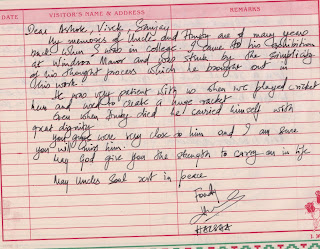 DATE
VISITOR'S NAME & ADDRESS
REMARKS
Dear Ashok, Vivek, Sanjay
My memories of Uncle and Aunty are of many years
back when I was in college. I came to his exhibition
at Windsor Manor and was stuck by the simplicity
of his thought process which he brought out in
his work.
He was very patient with us when we played cricket
and used to create a huge racket
Even when Aunty died he carried himself with
great dignity
You were very close to him and I am sure
you will miss him.
May God give you the strength to carry on in life
May Uncles soul rest in peace
Fondly